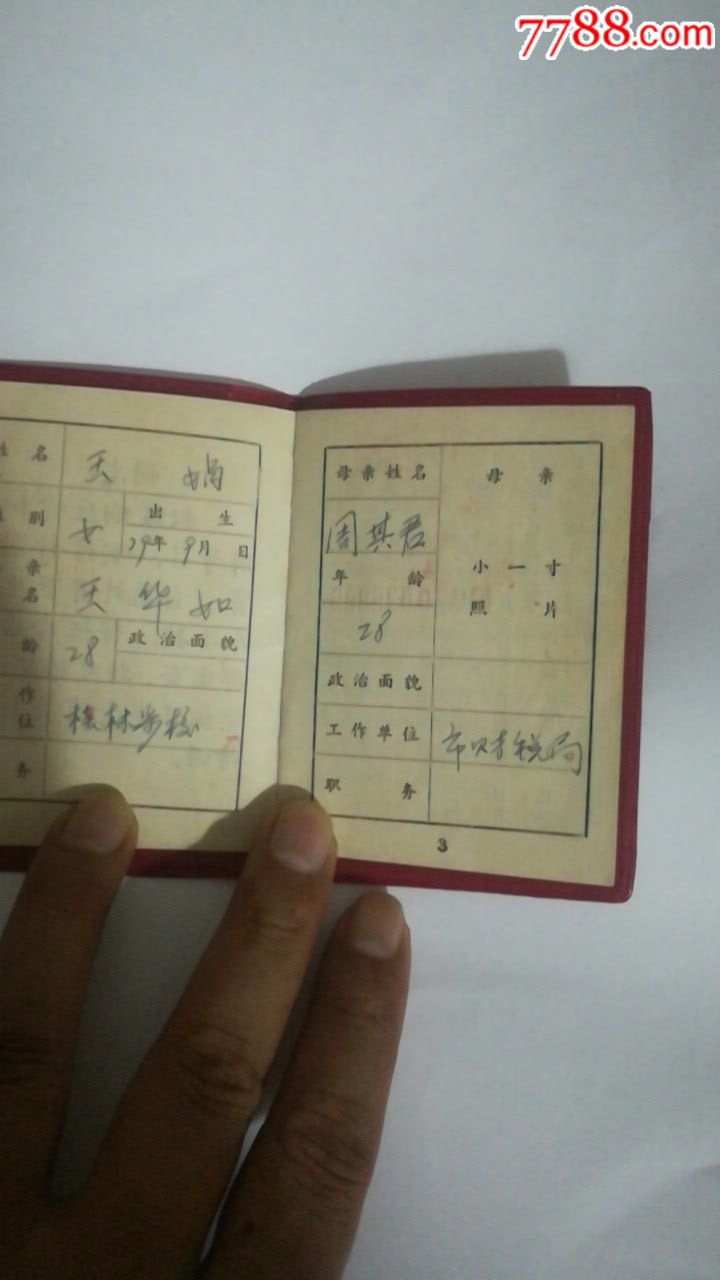 7788.com
姓 名
王 娟
性 别
女
出 生
79年 9月 日
亲
名
王 华 如
龄
28
政治面貌
作
位
桂林步校
务
母亲姓名
周其君
年 龄
28
政治面貌
工作单位
市财税局
职 务
母 亲
小 一 寸
照 片
3